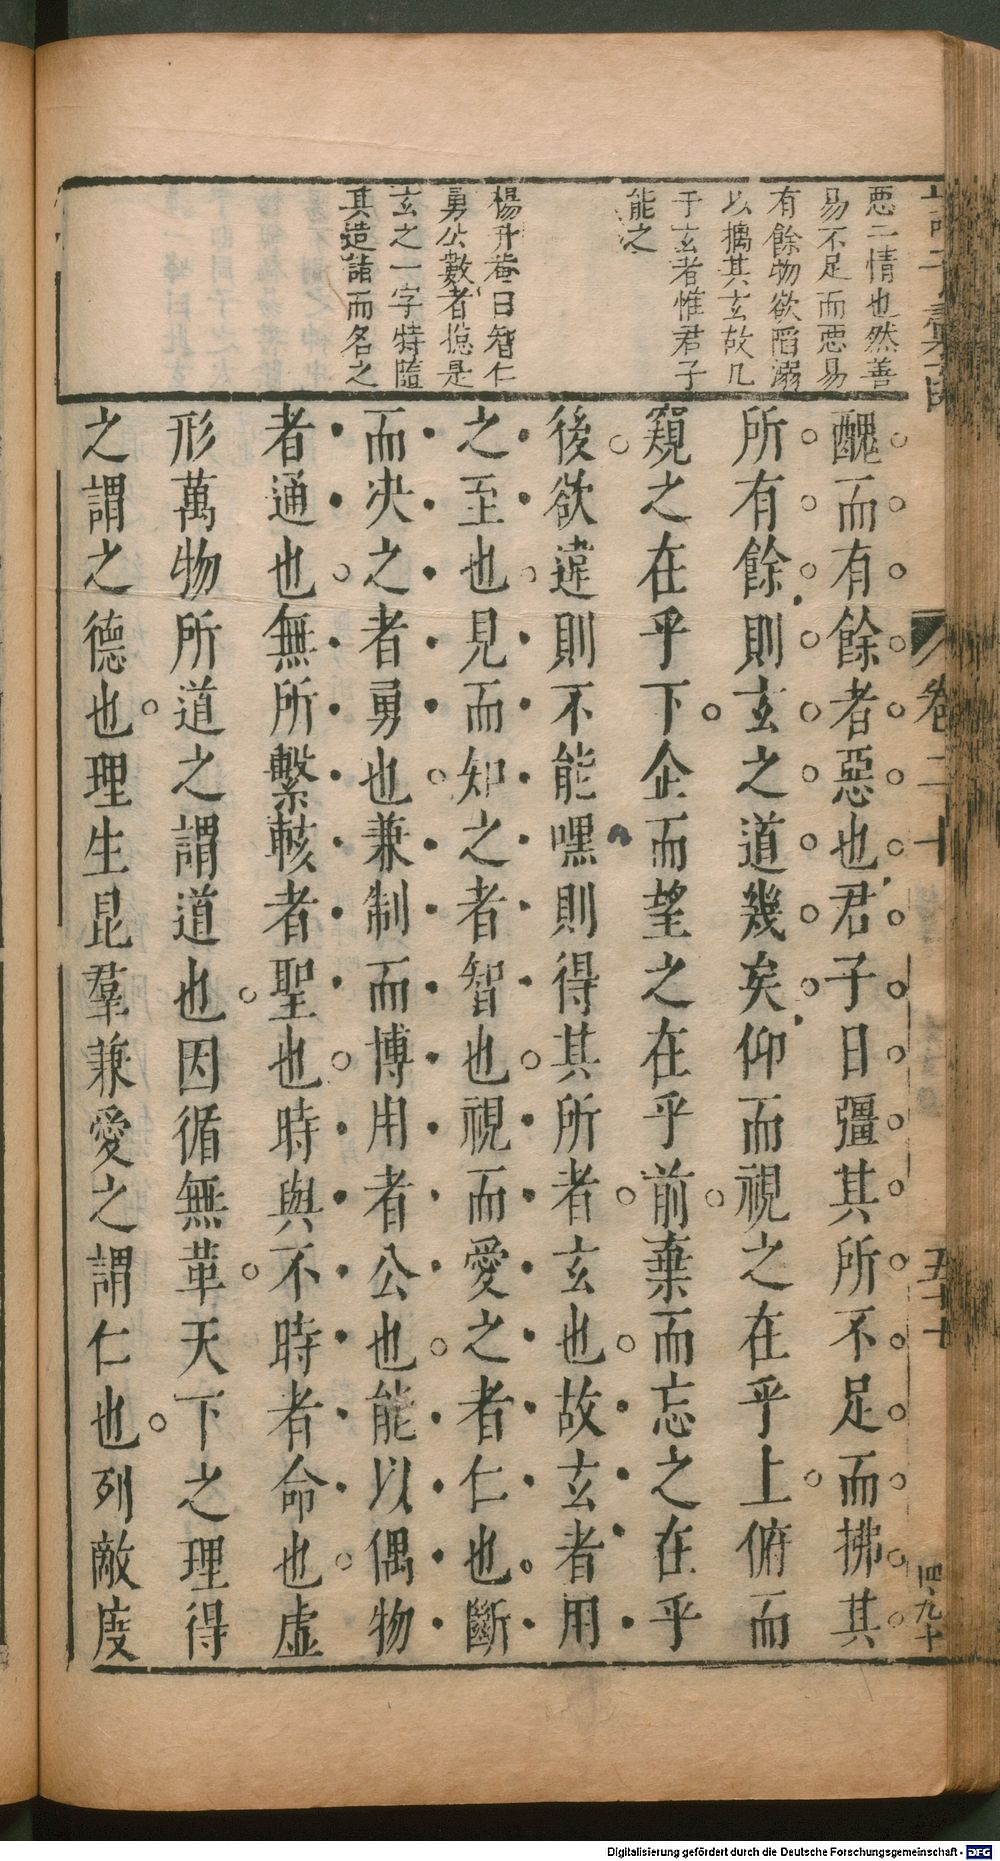 惡二情也然善
易不足而惡易
有餘物欲陷溺
以擒其玄故凡
于玄者惟君子
能之
楊升菴曰智仁
勇公數者揔是
玄之一字特隨
其造詣而名之
醜而有餘者惡也君子日彊其所不足而拂其
所有餘則玄之道幾矣仰而視之在乎上俯而
窺之在乎下企而望之在乎前棄而忘之在乎
後欲違則不能嘿則得其所者玄也故玄者用
之至也見而知之者智也視而愛之者仁也斷
而决之者勇也兼制而博用者公也能以偶物
者通也無所繫輆者聖也時與不時者命也虛
形萬物所道之謂道也因循無革天下之理得
之謂之德也理生昆羣兼愛之謂仁也列敵度
卷二十
五十七
四九十
Digitalisierung gefördert durch die Deutsche Forschungsgemeinschaft - DFG